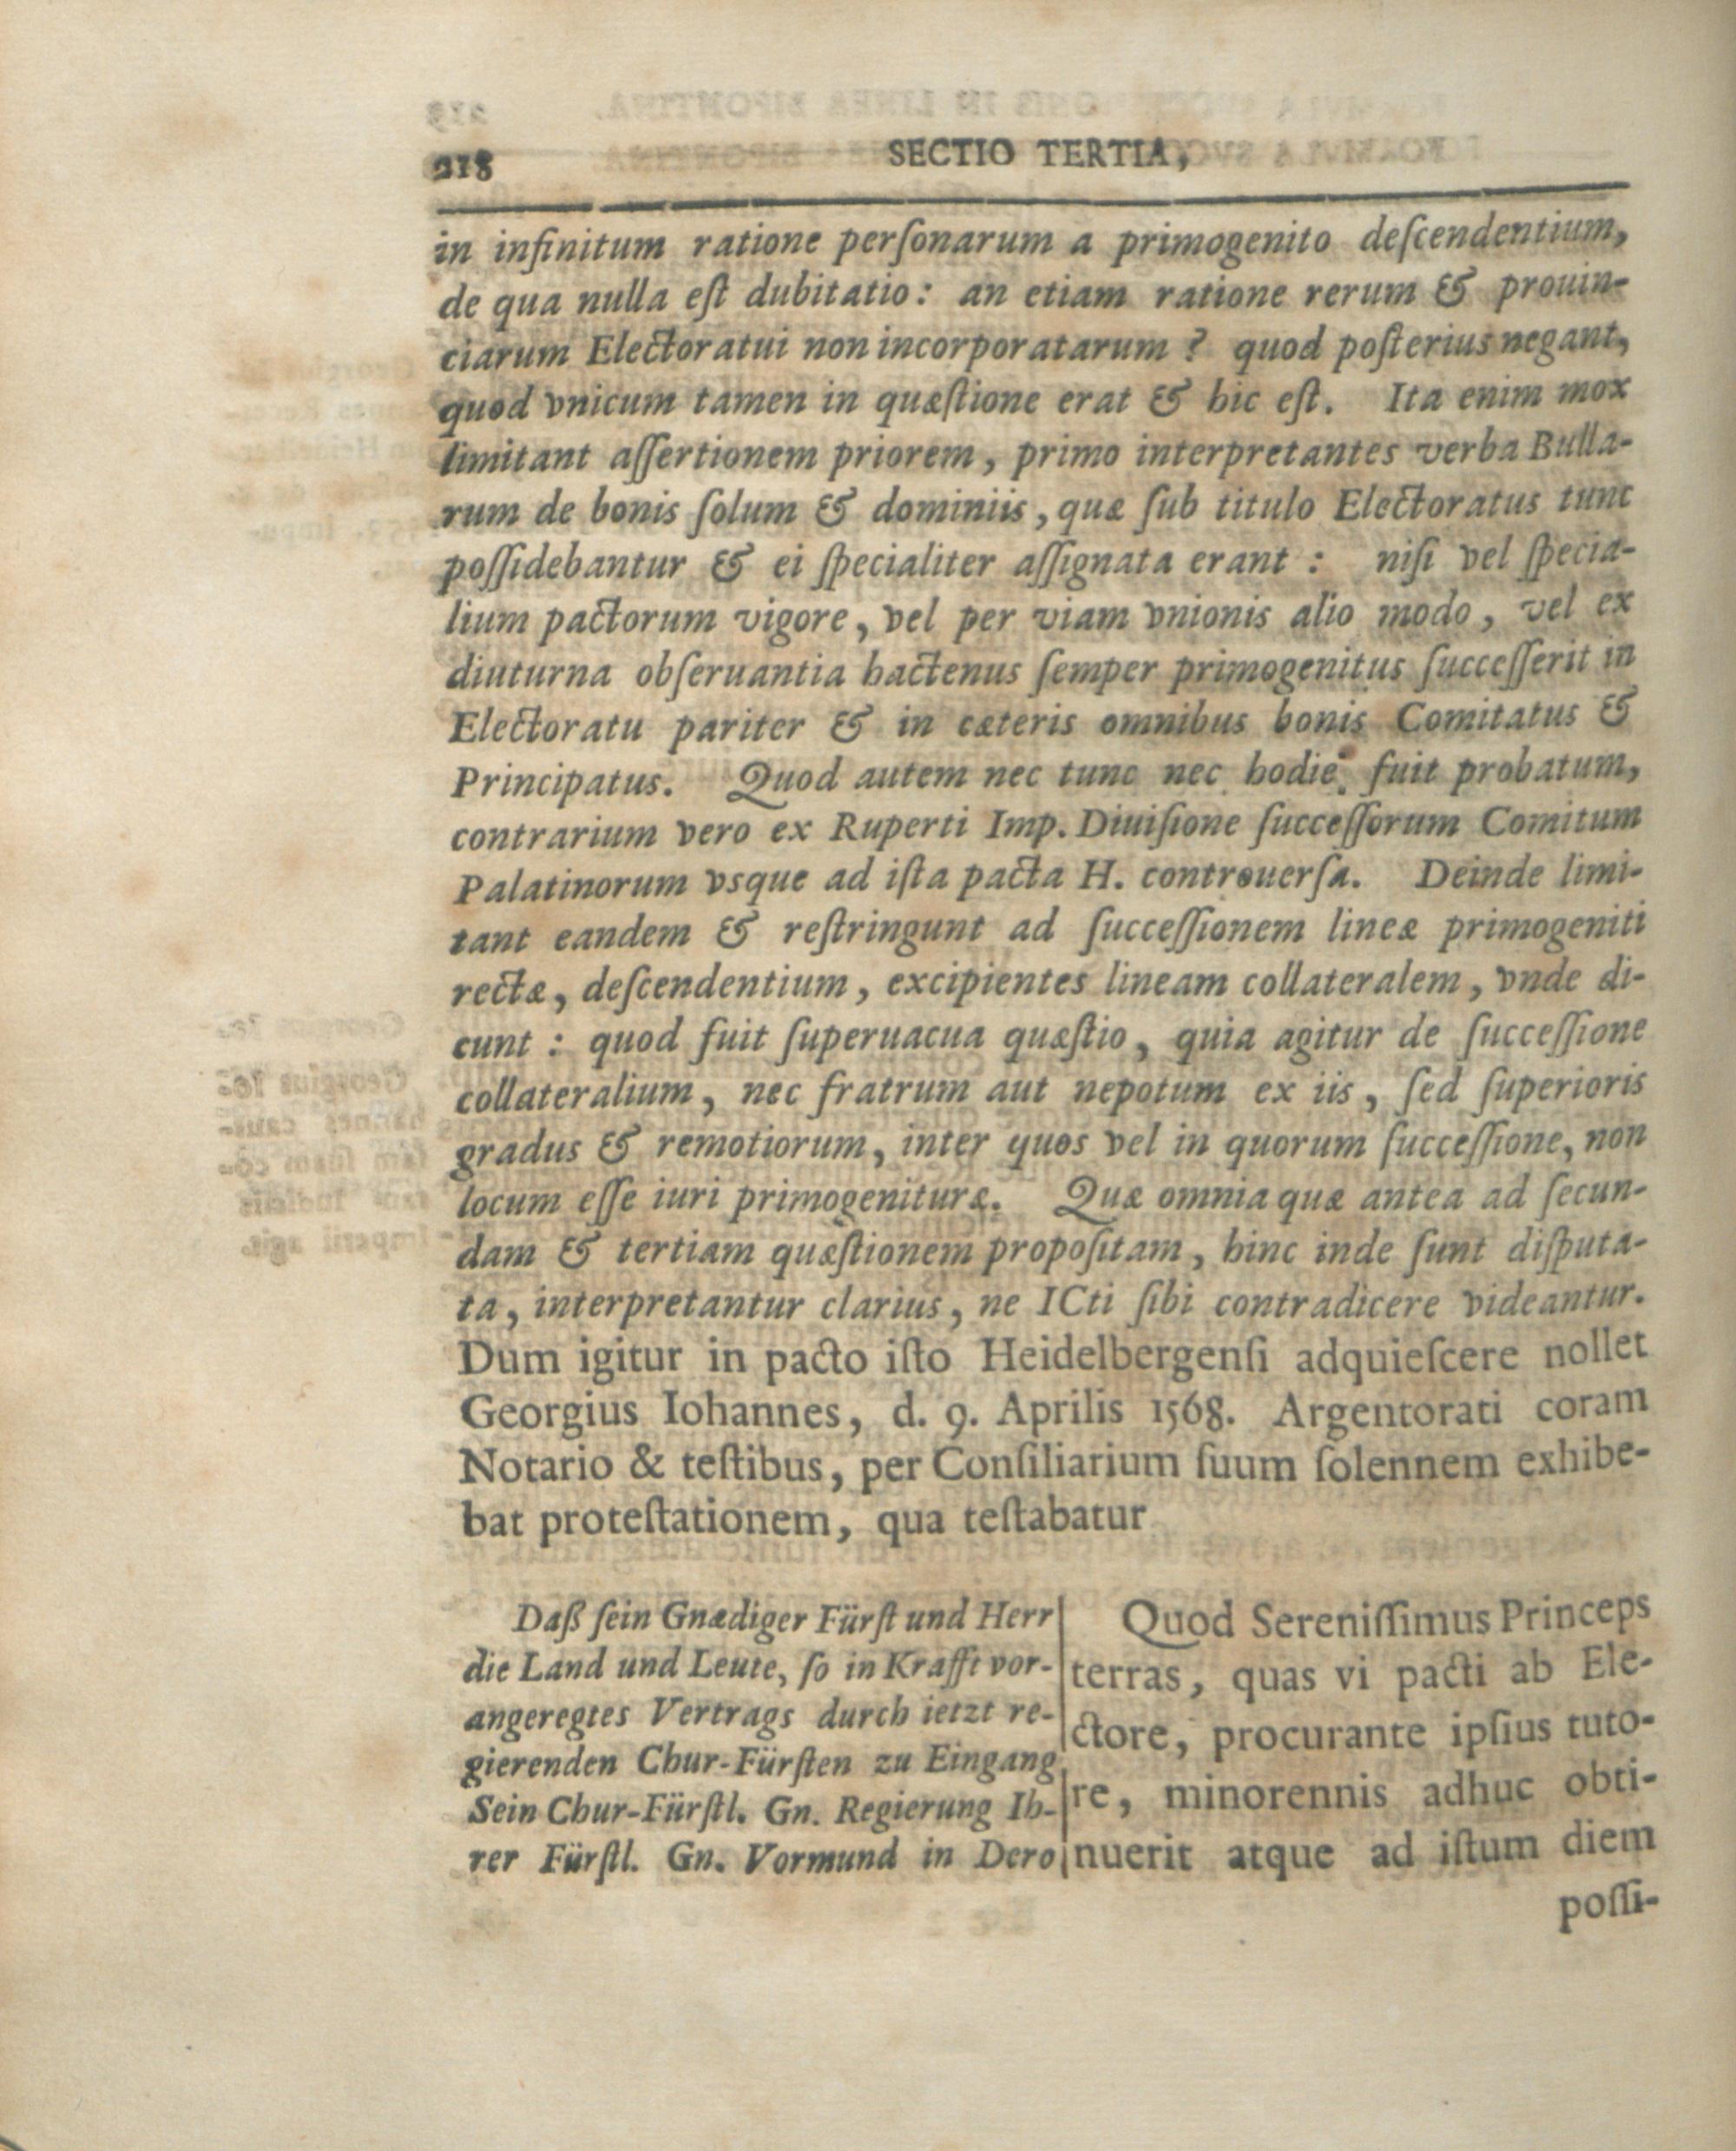 218
SECTIO TERTIA,
in infinitum ratione perſonarum a primogenito deſcendentium,
de qua nulla eſt dubitatio: an etiam ratione rerum & prouin-
ciarum Electoratui non incorporatarum ? quod poſterius negant,
quod vnicum tamen in quæſtione erat & hic eſt. Ita enim mox
limitant aſſertionem priorem, primo interpretantes verba Bulla-
rum de bonis ſolum & dominiis, quæ ſub titulo Electoratus tunc
poſſidebantur & ei ſpecialiter aſſignata erant : niſi vel ſpecia-
lium pactorum vigore, vel per viam vnionis alio modo, vel ex
diuturna obſeruantia hactenus ſemper primogenitus ſucceſſerit in
Electoratu pariter & in cæteris omnibus bonis Comitatus &
Principatus. Quod autem nec tunc nec hodie fuit probatum,
contrarium vero ex Ruperti Imp. Diuiſione ſucceſſorum Comitum
Palatinorum vsque ad iſta pacta H. controuerſa. Deinde limi-
tant eandem & reſtringunt ad ſucceſſionem lineæ primogeniti
rectæ, deſcendentium, excipientes lineam collateralem, vnde di-
cunt : quod fuit ſuperuacua quæſtio, quia agitur de ſucceſſione
collateralium, nec fratrum aut nepotum ex iis, ſed ſuperioris
gradus & remotiorum, inter quos vel in quorum ſucceſſione, non
locum eſſe iuri primogenituræ. Quæ omnia quæ antea ad ſecun-
dam & tertiam quæſtionem propoſitam, hinc inde ſunt diſputa-
ta, interpretantur clarius, ne ICti ſibi contradicere videantur.
Dum igitur in pacto iſto Heidelbergenſi adquieſcere nollet
Georgius Iohannes, d. 9. Aprilis 1568. Argentorati coram
Notario & teſtibus, per Conſiliarium ſuum ſolennem exhibe-
bat proteſtationem, qua teſtabatur
Daß ſein Gnædiger Fürſt und Herr
die Land und Leute, ſo in Krafft vor-
angeregtes Vertrags durch ietzt re-
gierenden Chur-Fürſten zu Eingang
Sein Chur-Fürſtl. Gn. Regierung Ih-
rer Fürſtl. Gn. Vormund in Dero
Quod Sereniſſimus Princeps
terras, quas vi pacti ab Ele-
ctore, procurante ipſius tuto-
re, minorennis adhuc obti-
nuerit atque ad iſtum diem
poſſi-